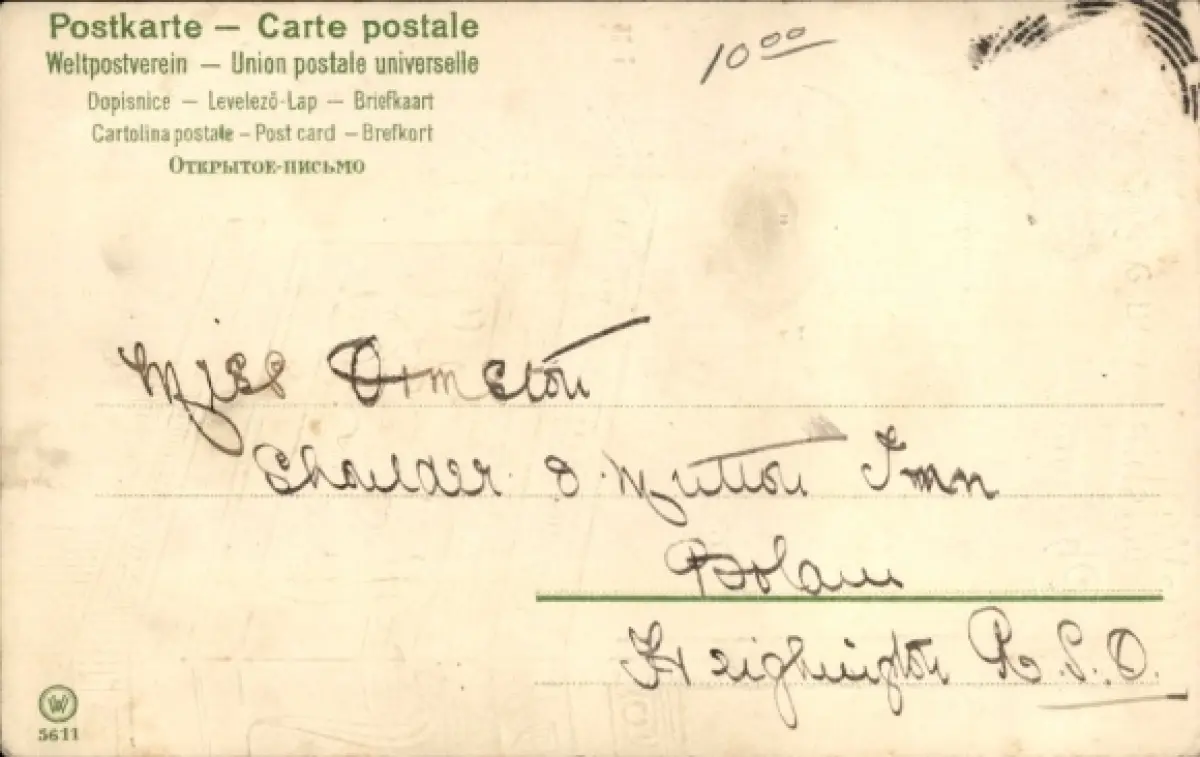 Postkarte — Carte postale
Weltpostverein — Union postale universelle
Dopisnice — Levelező-Lap — Briefkaart
Cartolina postale — Post card — Brefkort
Открытое-письмо
10⁰⁰
Miss Ormston
Shoulder & Mutton Inn
Bolam
Heighington R.S.O.
W
5611